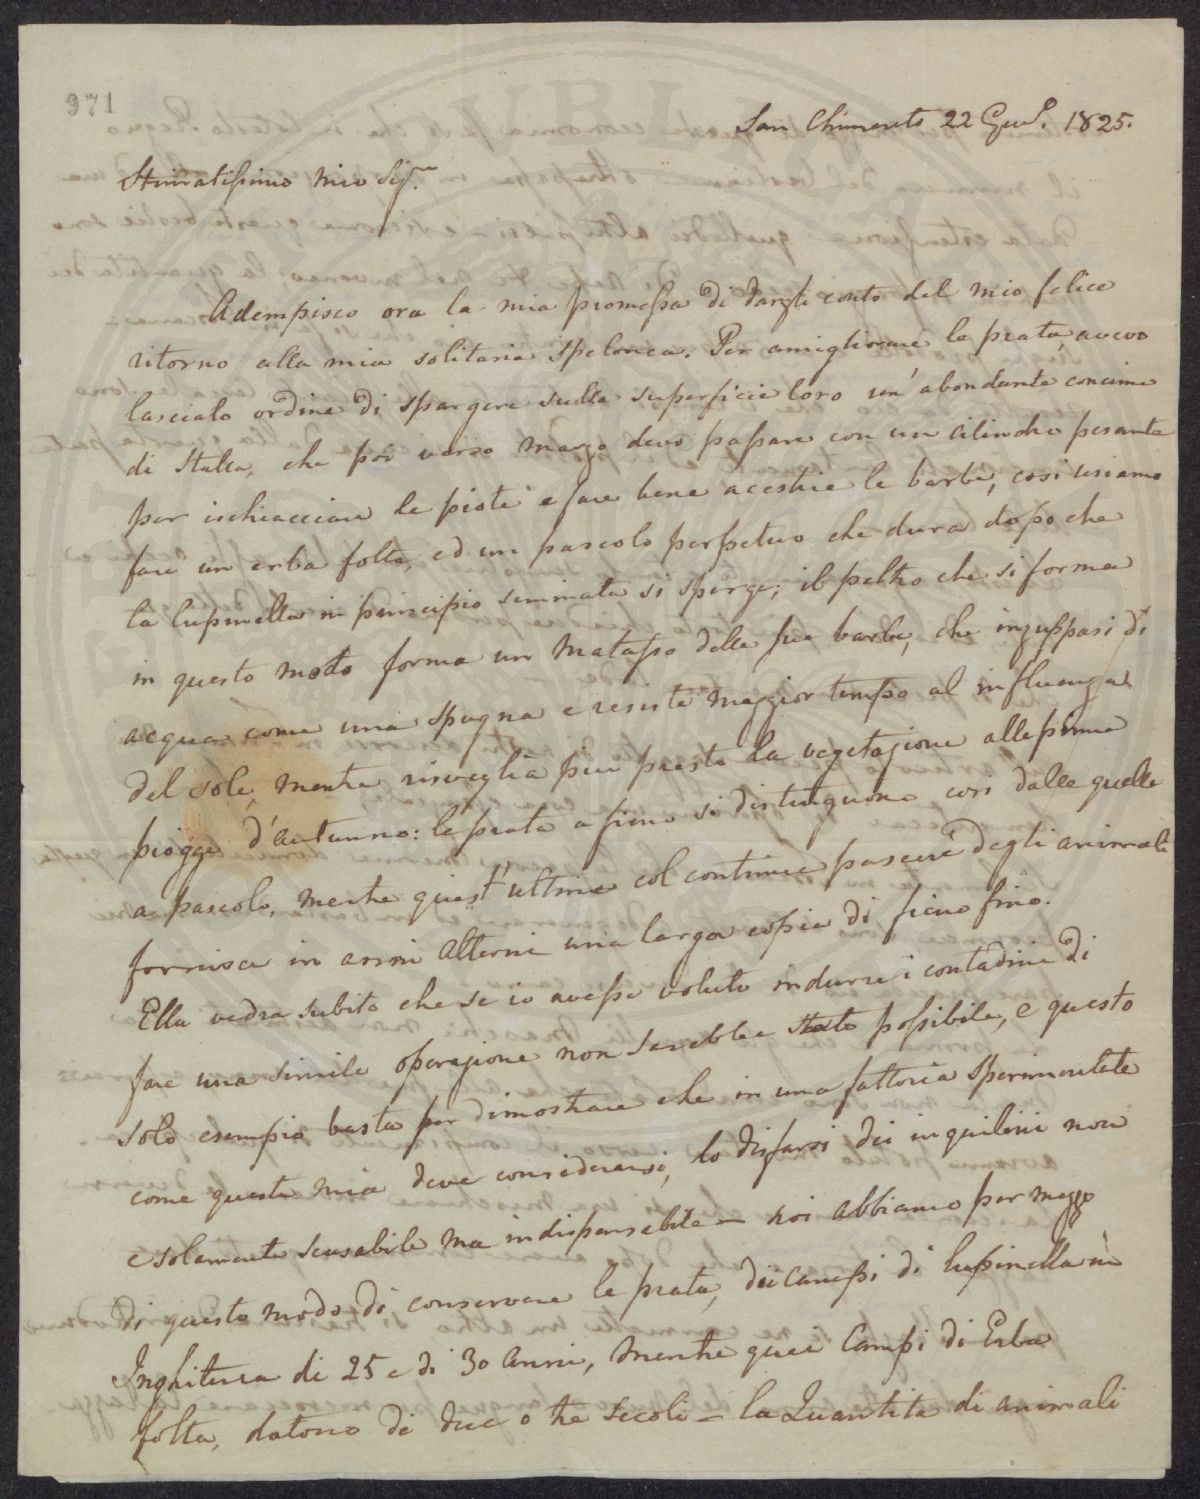 971
San Chimento 22 Gen.º 1825.
Stimatissimo mio Sigre
Adempisco ora la mia promessa di dargli conto del mio felice
ritorno alla mia solitaria spelonca. Per amigliorare le prata, avevo
lasciato ordine di spargere sulla superficie loro un' abondante concime
di stalla, che poi verso marzo devo passare con un cilindro pesante
per ischiacciare le piote e fare bene acestire le barbe, così usiamo
fare un erba folta, ed un pascolo perpetuo che dura dopo che
la lupinella in principio seminata si sperge; il feltro che si forma
in questo modo forma un matasso delle sue barbe, che inzuppasi di
acqua come una spugna e resiste maggior tempo al influenza
del sole, mentre risveglia piu presto la vegetazione alle prime
piogge d'autunno: le prata a fieno si distinguono così dalle quelle
a pascolo, mentre quest' ultime col continuo pascere degli animali
fornisce in anni alterni una larga copia di fieno fino.
Ella vedra subito che se io avesse voluto indurre i contadini di
fare una simile operazione non sarebbe stato possibile, e questo
solo esempio basta per dimostrare che in una fattoria sperimentale
come questa mia deve considerarsi, lo disfarsi dei inquilini non
e solamente scusabile ma indispensabile – noi abbiamo per mezzo
di questo modo di conservare le prata, dei campi di lupinella in
Inghilterra di 25 e di 30 anni, mentre quei Campi di Erba
folta, datono di due o tre secoli – la Quantita di animali